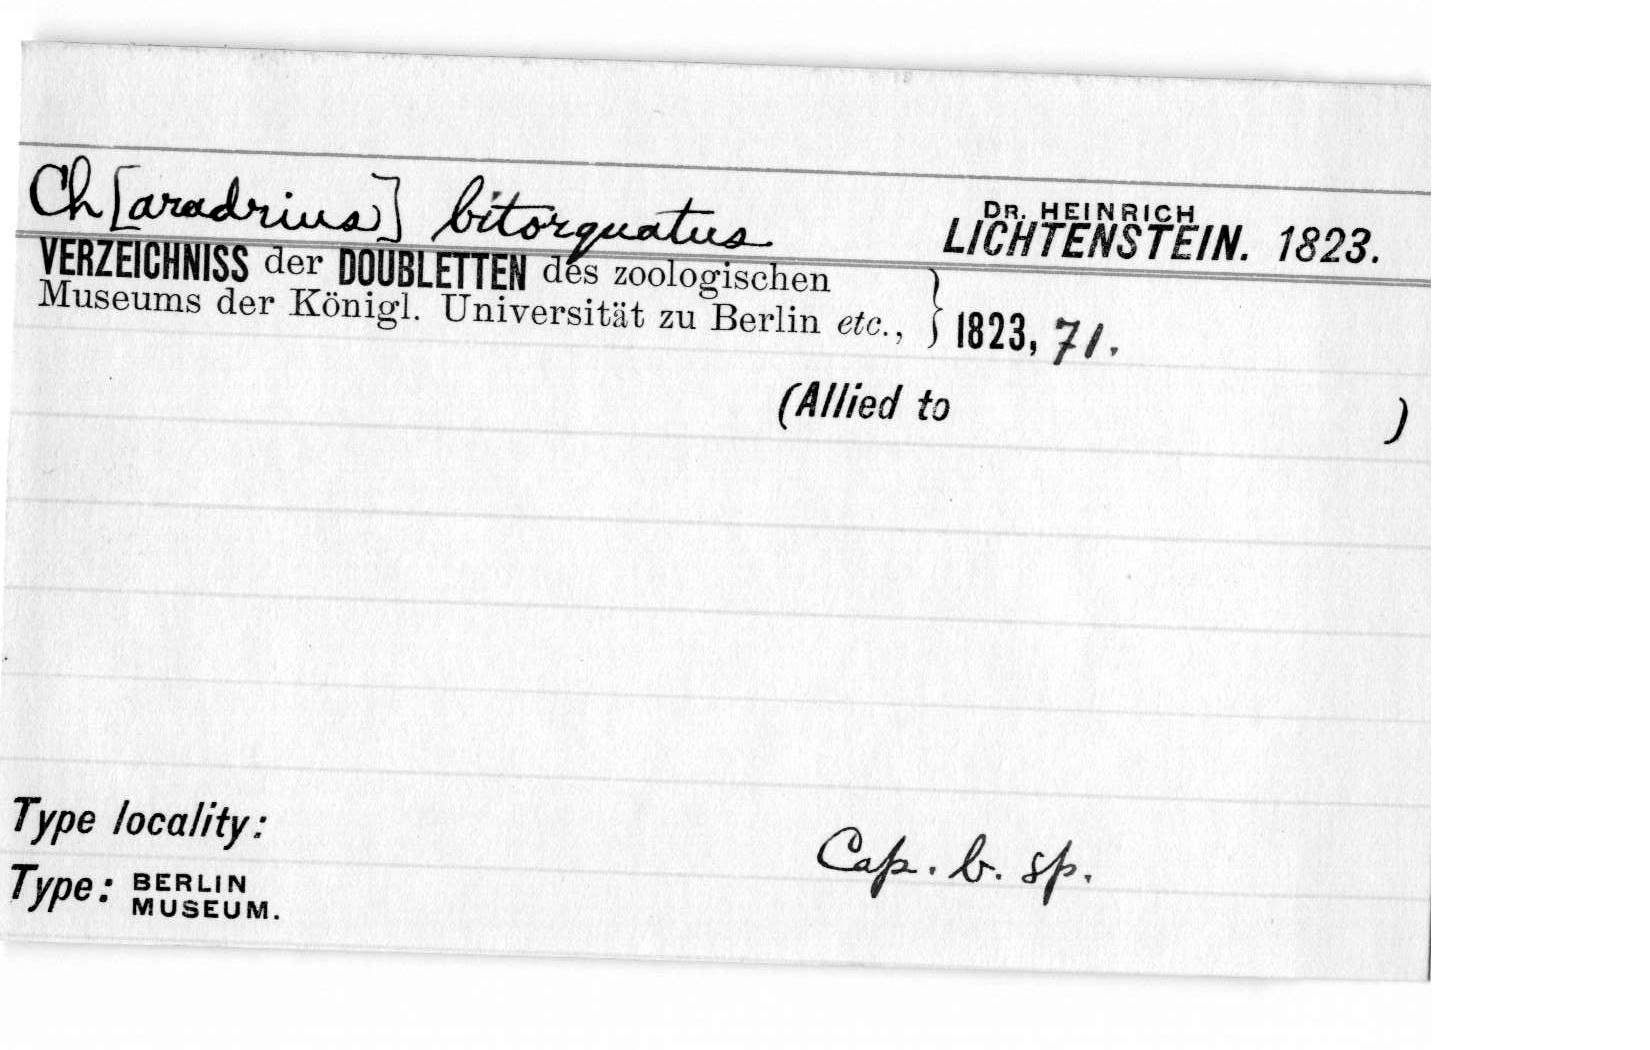 Ch[aradrius] bitorquatus
DR. HEINRICH
LICHTENSTEIN. 1823.
VERZEICHNISS der DOUBLETTEN des zoologischen
Museums der Königl. Universität zu Berlin etc., } 1823, 71.
(Allied to )
Type locality:
Cap. b. sp.
Type: BERLIN
MUSEUM.